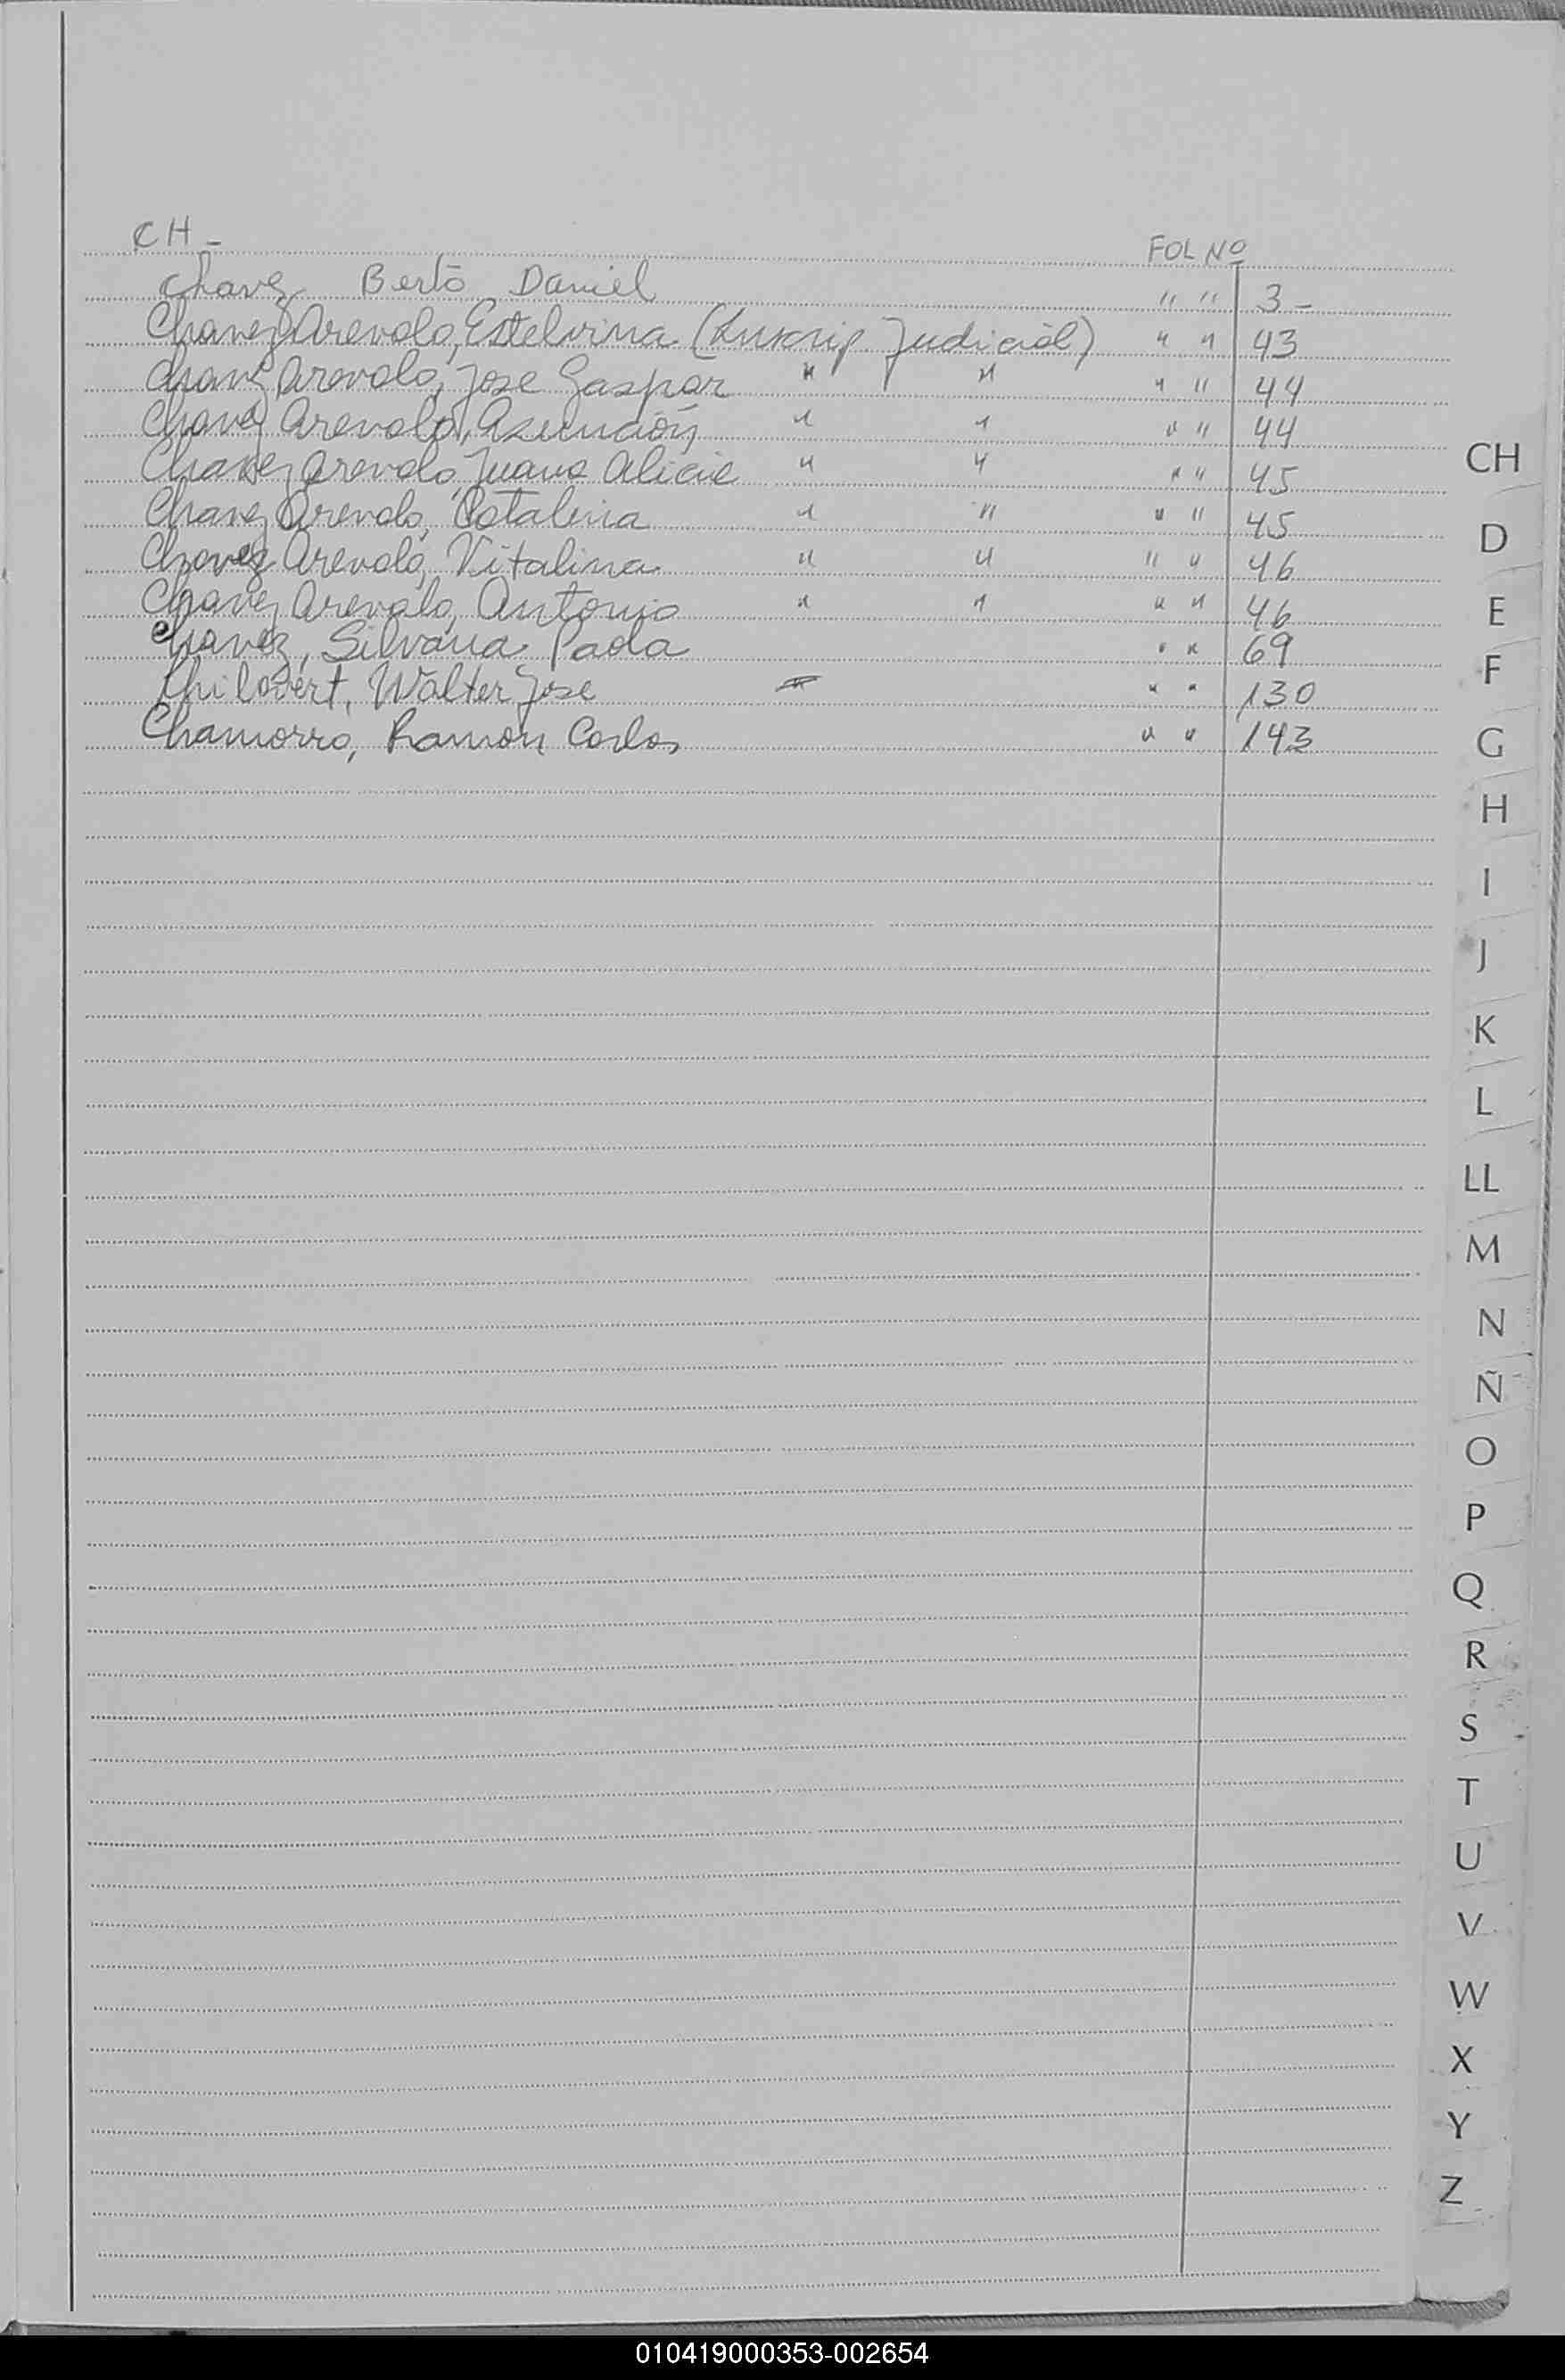 CH - FOL Nº
Chavez Berto Daniel " " 3 -
Chavez Arevalo, Estelvina (Inscrip. Judicial) " " 43
Chavez Arevalo, Jose Gaspar " " " " 44
Chavez Arevalo, Asunción " " " " 44
Chavez Arevalo, Juana Alicie " " " " 45
Chavez Arevalo, Catalina " " " " 45
Chavez Arevalo, Vitalina " " " " 46
Chavez Arevalo, Antonio " " " " 46
Chavez, Silvana Paola " " 69
Chilavert, Walter Jose " " 130
Chamorro, Ramón Carlos " " 143
CH
D
E
F
G
H
I
J
K
L
LL
M
N
Ñ
O
P
Q
R
S
T
U
V
W
X
Y
Z
010419000353-002654